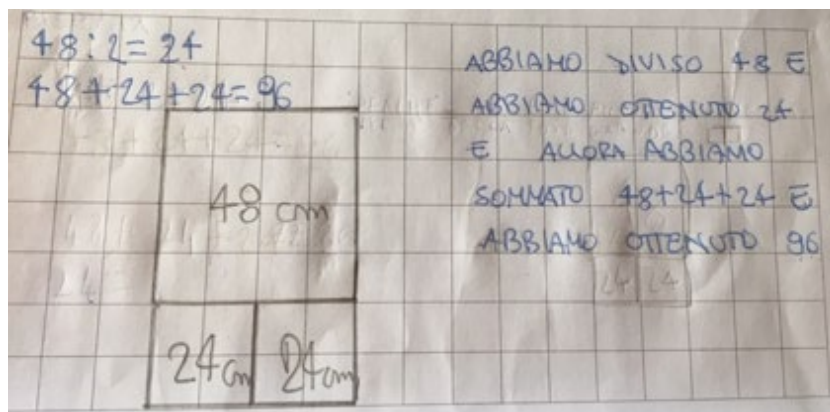 48:2=24
48+24+24=96
48 cm
24cm
24cm
ABBIAMO DIVISO 48 E
ABBIAMO OTTENUTO 24
E ALLORA ABBIAMO
SOMMATO 48+24+24 E
ABBIAMO OTTENUTO 96
24 24